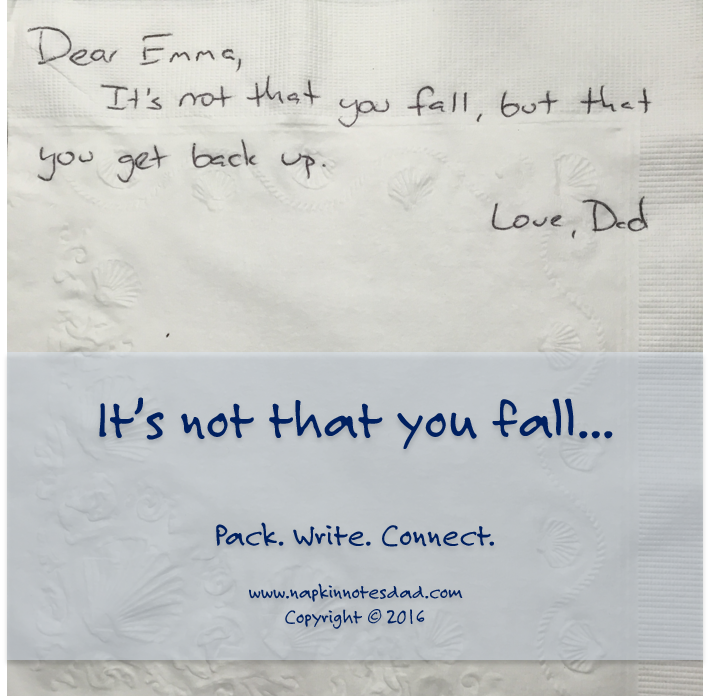 Dear Emma,
It's not that you fall, but that
you get back up.
Love, Dad
It's not that you fall...
Pack. Write. Connect.
www.napkinnotesdad.com
Copyright © 2016